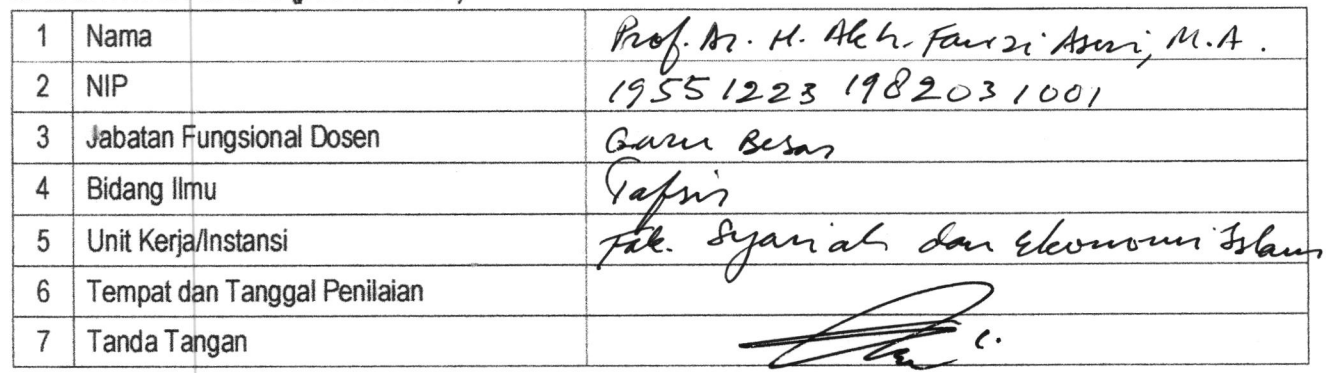 1 Nama Prof. Dr. H. Akh. Fauzi Aseri, M.A.
2 NIP 19551223 198203 1001
3 Jabatan Fungsional Dosen Guru Besar
4 Bidang Ilmu Tafsir
5 Unit Kerja/Instansi Fak. Syariah dan Ekonomi Islam
6 Tempat dan Tanggal Penilaian
7 Tanda Tangan